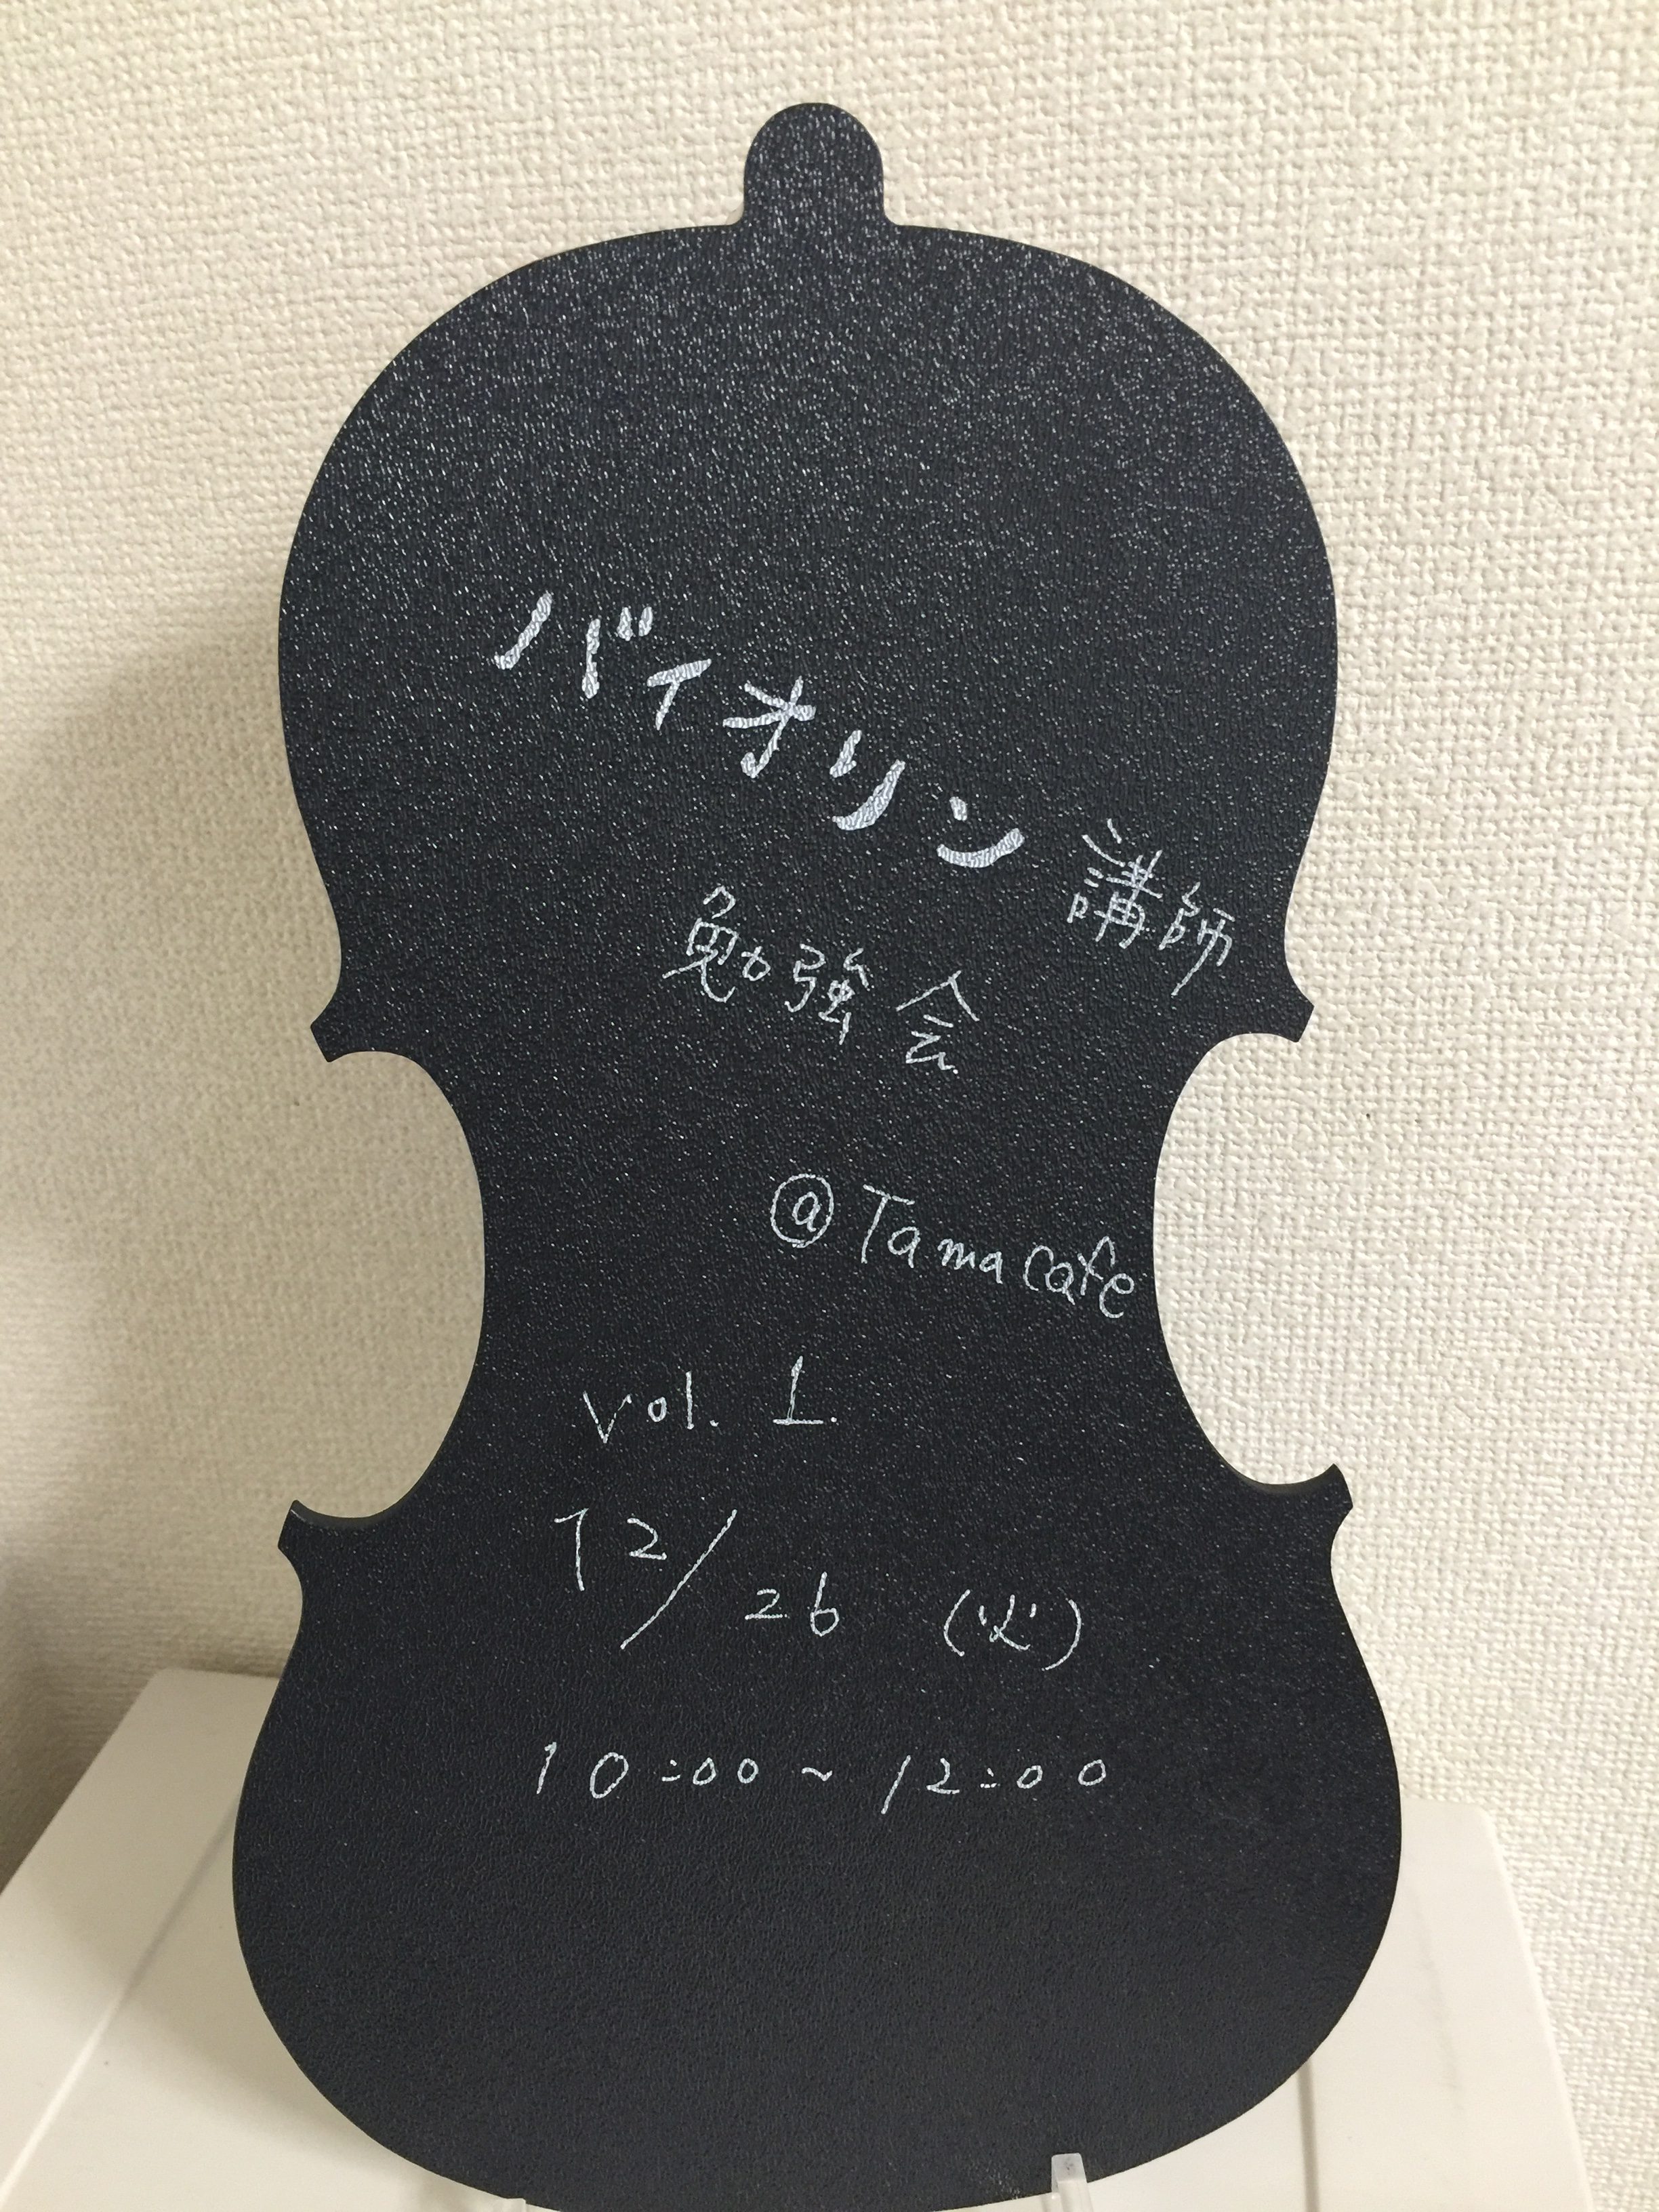 バイオリン講師
勉強会
@Tamacafe
vol. 1.
12/26 (火)
10:00~12:00